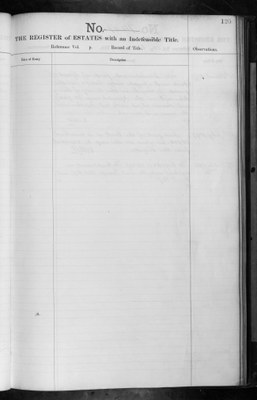 139
No.
THE REGISTER of ESTATES with an Indefeasible Title:
Reference Vol. p. Record of Title. Observations.
Description.